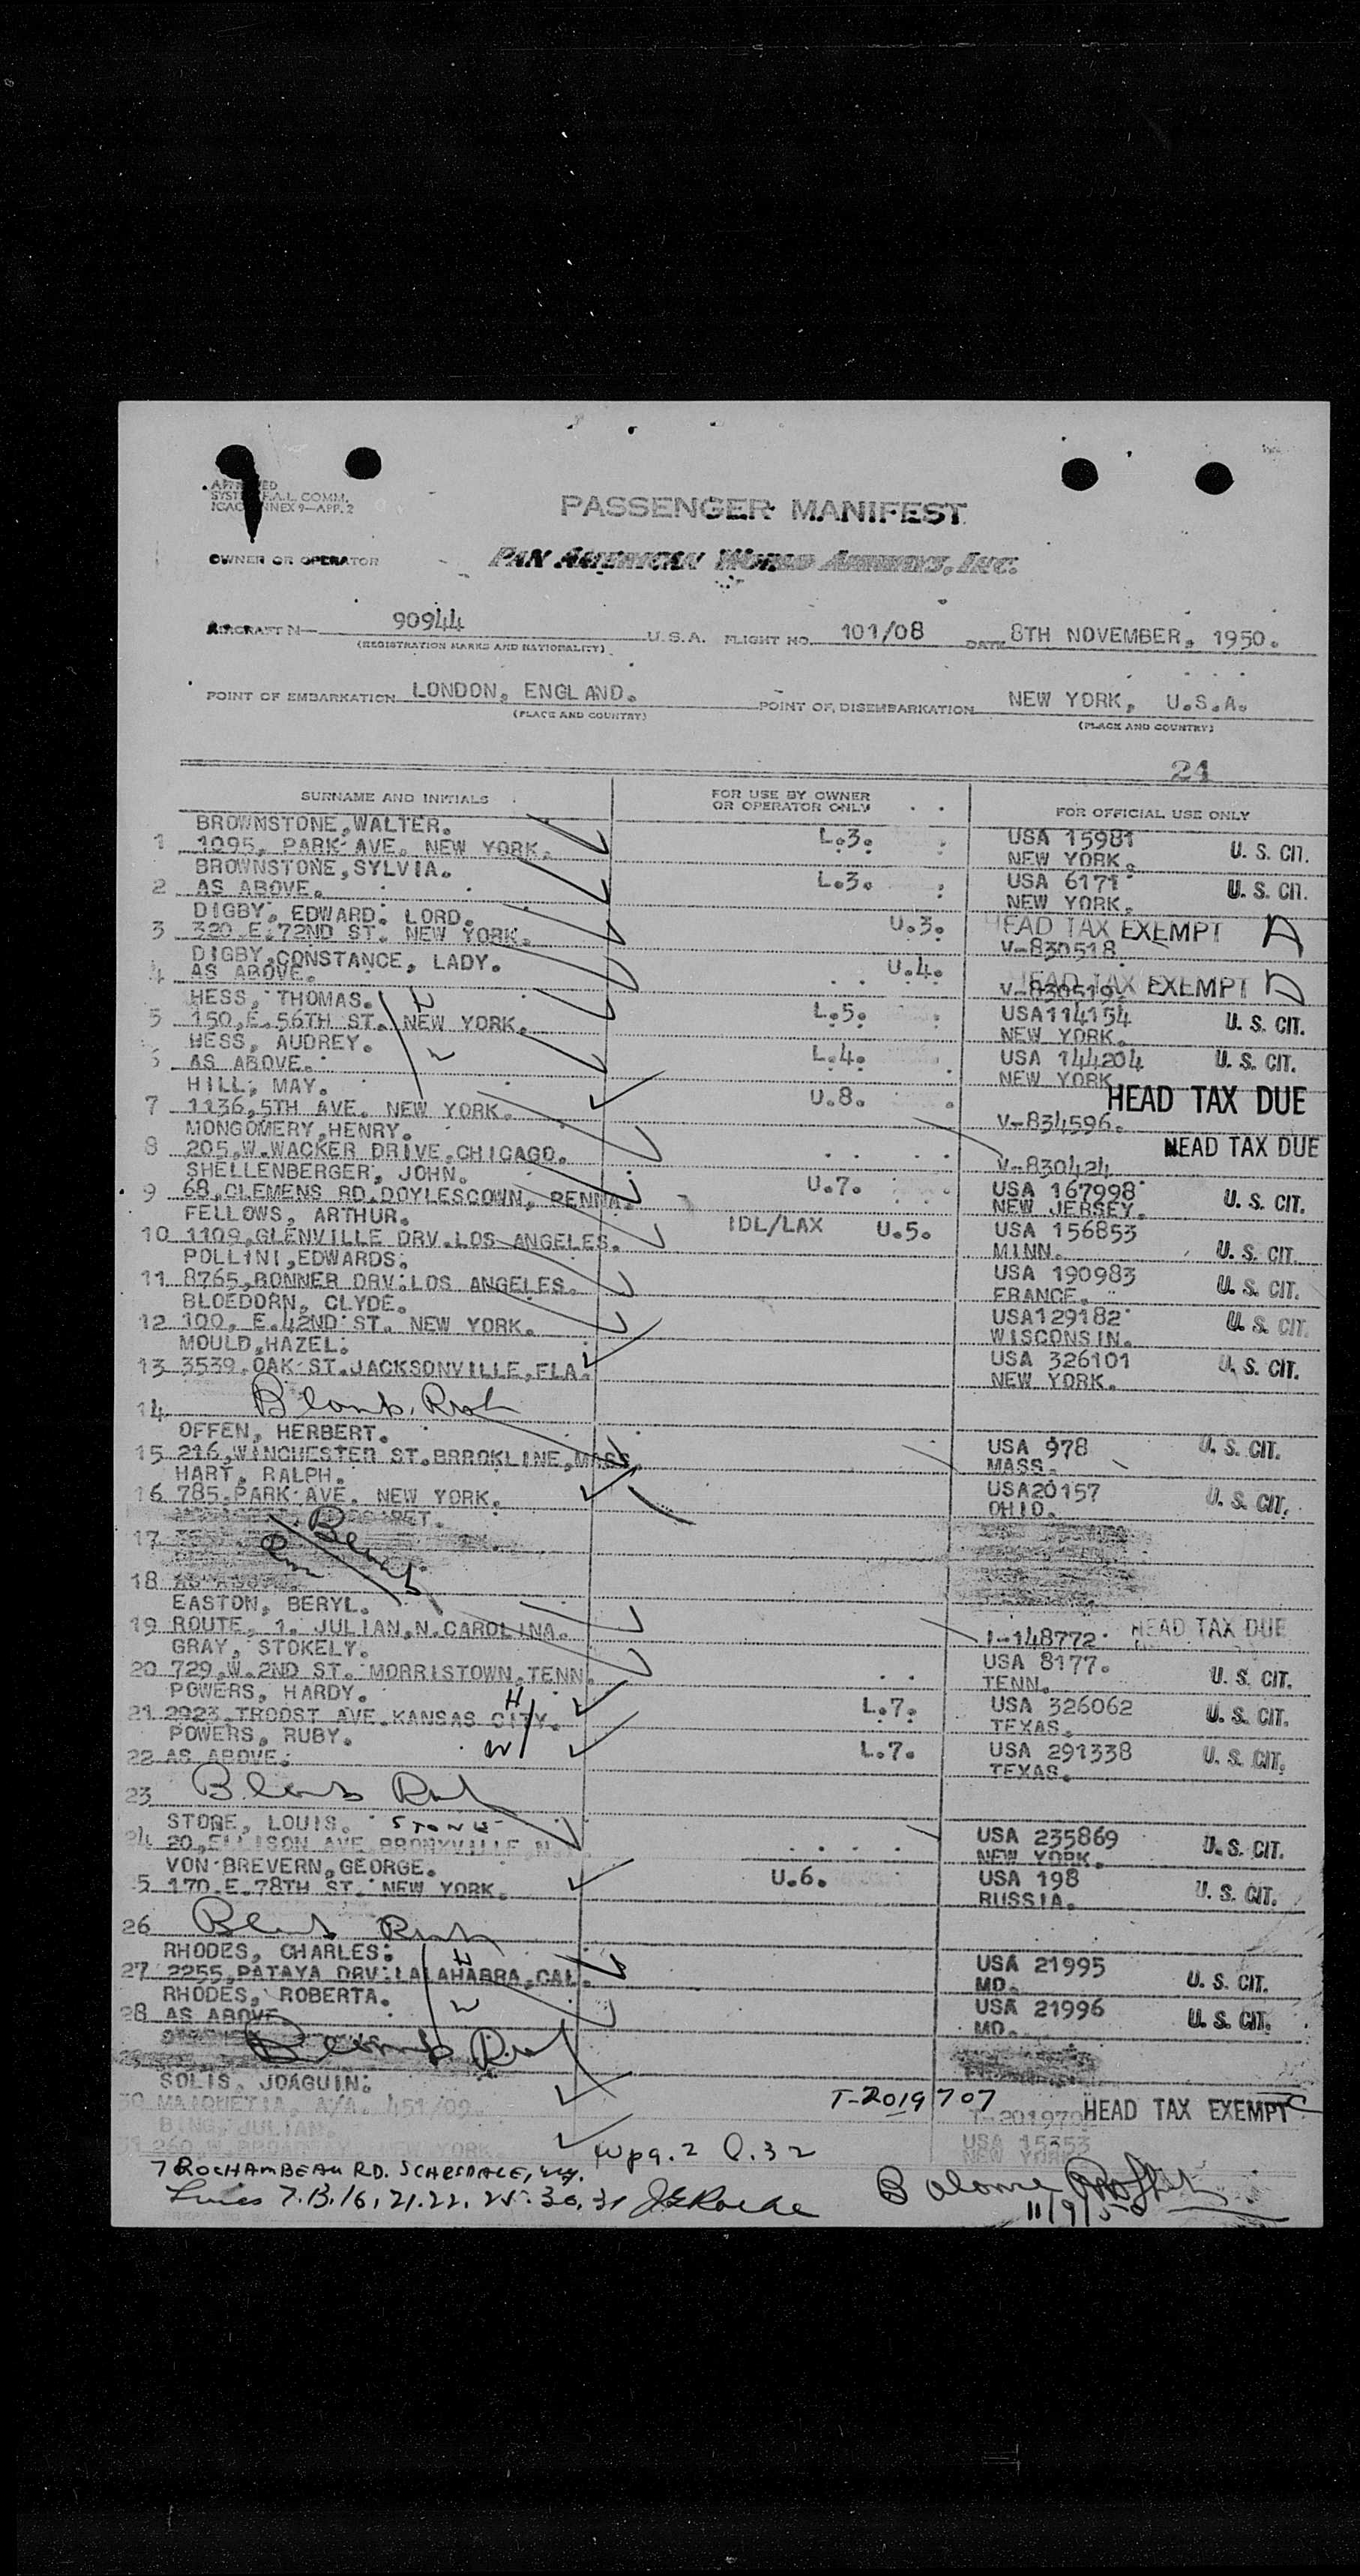 PASSENGER MANIFEST
OWNER OR OPERATOR PAN AMERICAN WORLD AIRWAYS, INC.
AIRCRAFT N 90944 U.S.A. FLIGHT NO. 101/08 DATE 8TH NOVEMBER, 1950.
(REGISTRATION MARKS AND NATIONALITY)
POINT OF EMBARKATION LONDON, ENGLAND. POINT OF DISEMBARKATION NEW YORK, U.S.A.
(PLACE AND COUNTRY) (PLACE AND COUNTRY)
24
SURNAME AND INITIALS FOR USE BY OWNER OR OPERATOR ONLY FOR OFFICIAL USE ONLY
BROWNSTONE,WALTER. L.3. USA 15981
1 1095, PARK AVE. NEW YORK. NEW YORK. U. S. CIT.
BROWNSTONE,SYLVIA. L.3. USA 6171
2 AS ABOVE. NEW YORK. U. S. CIT.
DIGBY, EDWARD. LORD. U.3. HEAD TAX EXEMPT A
3 320.E.72ND ST. NEW YORK. V-830518
DIGBY,CONSTANCE, LADY. U.4. HEAD TAX EXEMPT A
4 AS ABOVE. V-830519.
HESS, THOMAS. H L.5. USA114154
5 150.E.56TH ST. NEW YORK. NEW YORK. U. S. CIT.
HESS, AUDREY. W L.4. USA 144204 U. S. CIT.
AS ABOVE. NEW YORK
HILL, MAY. U.8. HEAD TAX DUE
7 1136,5TH AVE. NEW YORK. V-834596.
MONGOMERY,HENRY. HEAD TAX DUE
8 205.W.WACKER DRIVE.CHICAGO. V-830424
SHELLENBERGER, JOHN. U.7. USA 167998
9 68,CLEMENS RD.DOYLESCOWN, PENNA. NEW JERSEY. U. S. CIT.
FELLOWS, ARTHUR. IDL/LAX U.5. USA 156853
10 1109,GLENVILLE DRV.LOS ANGELES. MINN. U. S. CIT.
POLLINI,EDWARDS. USA 190983
11 8765,BONNER DRV.LOS ANGELES. FRANCE. U. S. CIT.
BLOEDORN, CLYDE. USA129182
12 100, E.42ND ST. NEW YORK. WISCONSIN. U. S. CIT.
MOULD,HAZEL. USA 326101
13 3539.OAK ST.JACKSONVILLE,FLA. NEW YORK. U. S. CIT.
14
OFFEN, HERBERT. USA 978
15 216,WINCHESTER ST.BRROKLINE,MASS. MASS. U. S. CIT.
HART, RALPH. USA20157
16 785.PARK AVE. NEW YORK. OHIO. U. S. CIT.
17
18
EASTON, BERYL.
19 ROUTE, 1. JULIAN,N.CAROLINA. I-148772 HEAD TAX DUE
GRAY, STOKELY. USA 8177.
20 729,W.2ND ST. MORRISTOWN,TENN. TENN. U. S. CIT.
POWERS, HARDY. H L.7. USA 326062
21 2923.TROOST AVE.KANSAS CITY. TEXAS. U. S. CIT.
POWERS, RUBY. W L.7. USA 291338
22 AS ABOVE. TEXAS. U. S. CIT.
23
LOUIS. STONE USA 235869
24 20,ELLISON AVE.BRONXVILLE,N. NEW YORK. U. S. CIT.
VON BREVERN,GEORGE. U.6. USA 198
5 170.E.78TH ST. NEW YORK. RUSSIA. U. S. CIT.
26
RHODES, CHARLES. H USA 21995
27 2255,PATAYA DRV.LALAHABRA,CAL. MD. U. S. CIT.
RHODES, ROBERTA. W USA 21996
28 AS ABOVE MD. U. S. CIT.
SOLIS, JOAGUIN. T-2019707
30 MAIQUETIA. A/A. 451/09. HEAD TAX EXEMPT C
BING, JULIAN. USA 15353
NEW YORK.
7 ROCHAMBEAU RD. SCARSDALE, N.Y. pg. 2 l. 32
Lines 7.13.16.21.22.25.30.31
11/9/50